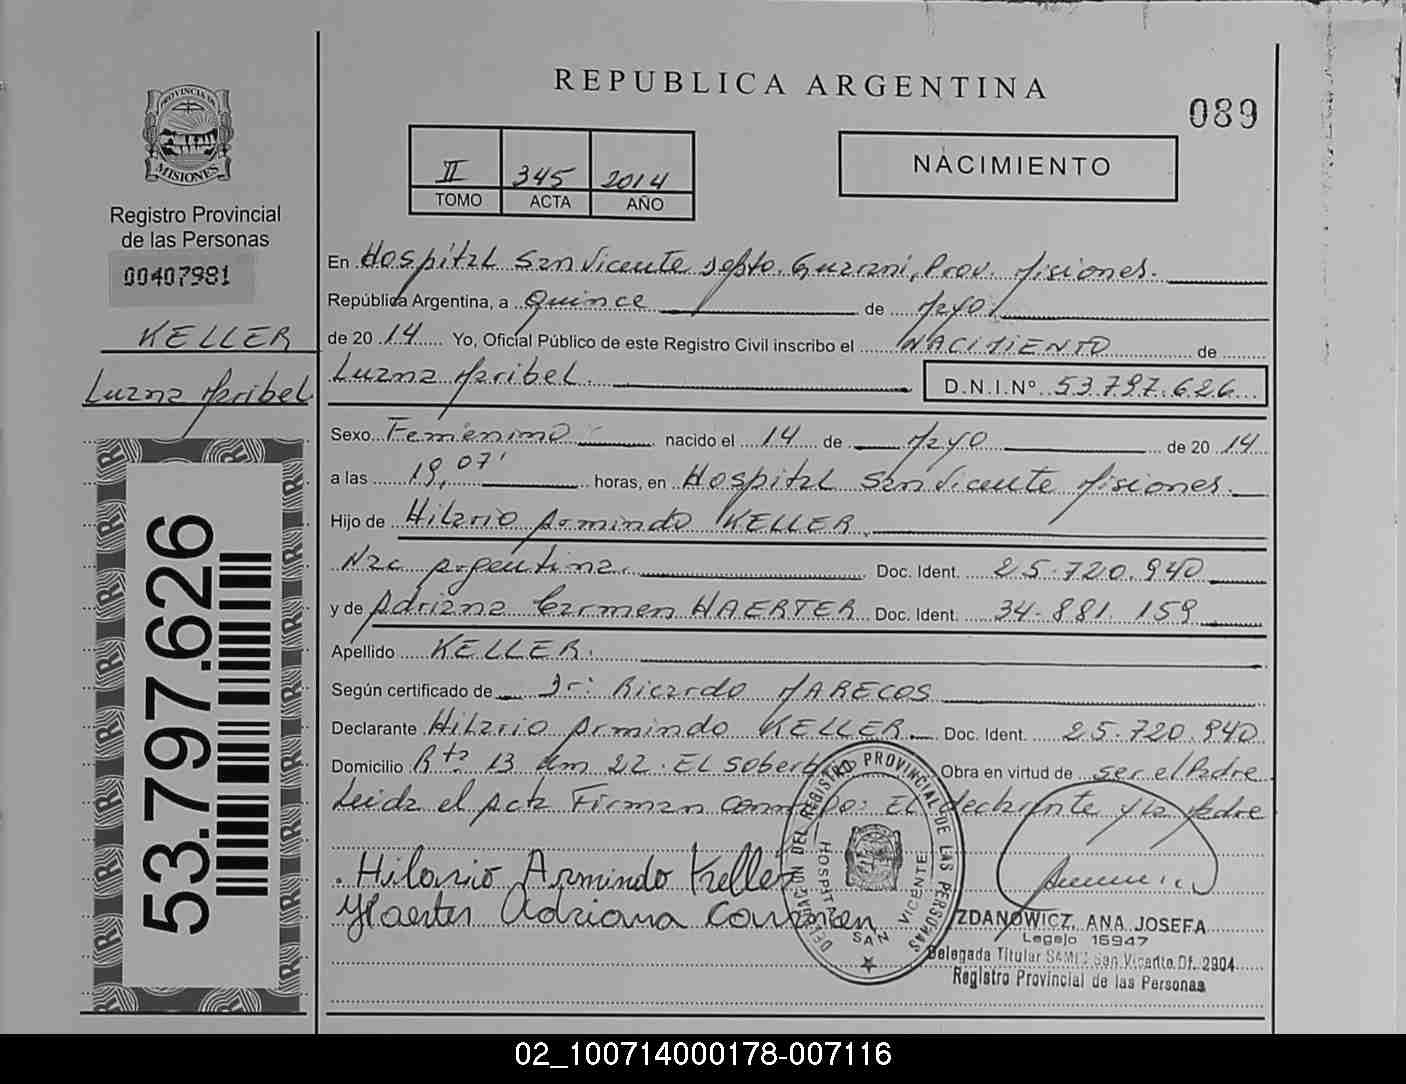 REPUBLICA ARGENTINA
089
PROVINCIA DE
MISIONES
Registro Provincial
de las Personas
00407981
KELLER
Luana Maribel
II 345 2014
TOMO ACTA AÑO
NACIMIENTO
En Hospital San Vicente Depto. Guarani, Prov. Misiones.
República Argentina, a Quince de Mayo
de 2014 Yo, Oficial Público de este Registro Civil inscribo el NACIMIENTO de
Luana Maribel. D.N.I.Nº 53.797.626
Sexo Femenino nacido el 14 de Mayo de 2014
a las 19,07' horas, en Hospital San Vicente Misiones.
Hijo de Hilario Armindo KELLER
Nac Argentina. Doc. Ident. 25.720.940
y de Adriana Carmen HAERTER Doc. Ident. 34.881.159
Apellido KELLER.
Según certificado de Dr: Ricardo MARECOS
Declarante Hilario Armindo KELLER Doc. Ident. 25.720.940
Domicilio Rta 13 Km 22. El Soberbio Obra en virtud de ser el Padre
Leida el Acta Firman conmigo: El declarante y la Madre
Hilario Armindo Keller
Haerter Adriana Carmen
DELEGACION DEL REGISTRO PROVINCIAL DE LAS PERSONAS
HOSPITAL SAN VICENTE
ZDANOWICZ, ANA JOSEFA
Legajo 16947
Delegada Titular SAMIC San Vicente Of. 2904
Registro Provincial de las Personas
53.797.626
02_100714000178-007116